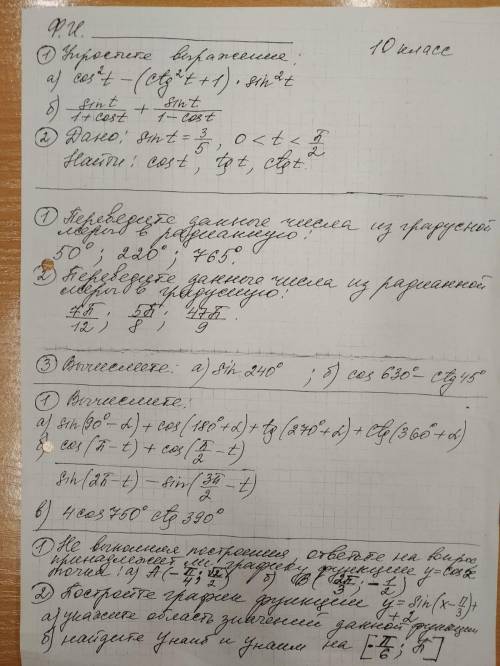 Ф.И.
10 класс
① Упростите выражение:
а) cos²t − (ctg²t + 1) · sin²t
б) sint/(1+cost) + sint/(1−cost)
② Дано: sint = 3/5, 0 < t < π/2
Найти: cost, tgt, ctgt.
① Переведите данные числа из градусной
меры в радианную:
50°; 220°; 765°.
② Переведите данные числа из радианной
меры в градусную:
7π/12; 5π/8; 47π/9.
③ Вычислите: а) sin 240° ; б) cos 630° − ctg 45°
① Вычислите:
а) sin(90°−α) + cos(180°+α) + tg(270°+α) + ctg(360°+α)
б) (cos(π−t) + cos(π/2 − t))/(sin(2π−t) − sin(3π/2 − t))
в) 4cos750° ctg 390°
① Не выполняя построения, ответьте на вопрос
принадлежит ли графику функции y = cosx
точки: а) A(−π/4; √2/2) б) B(2π/3; −1/2)
② Постройте график функции y = sin(x − π/3) + 2
а) укажите область значений данной функции
б) найдите yнаиб и yнаим на [−π/6; π]